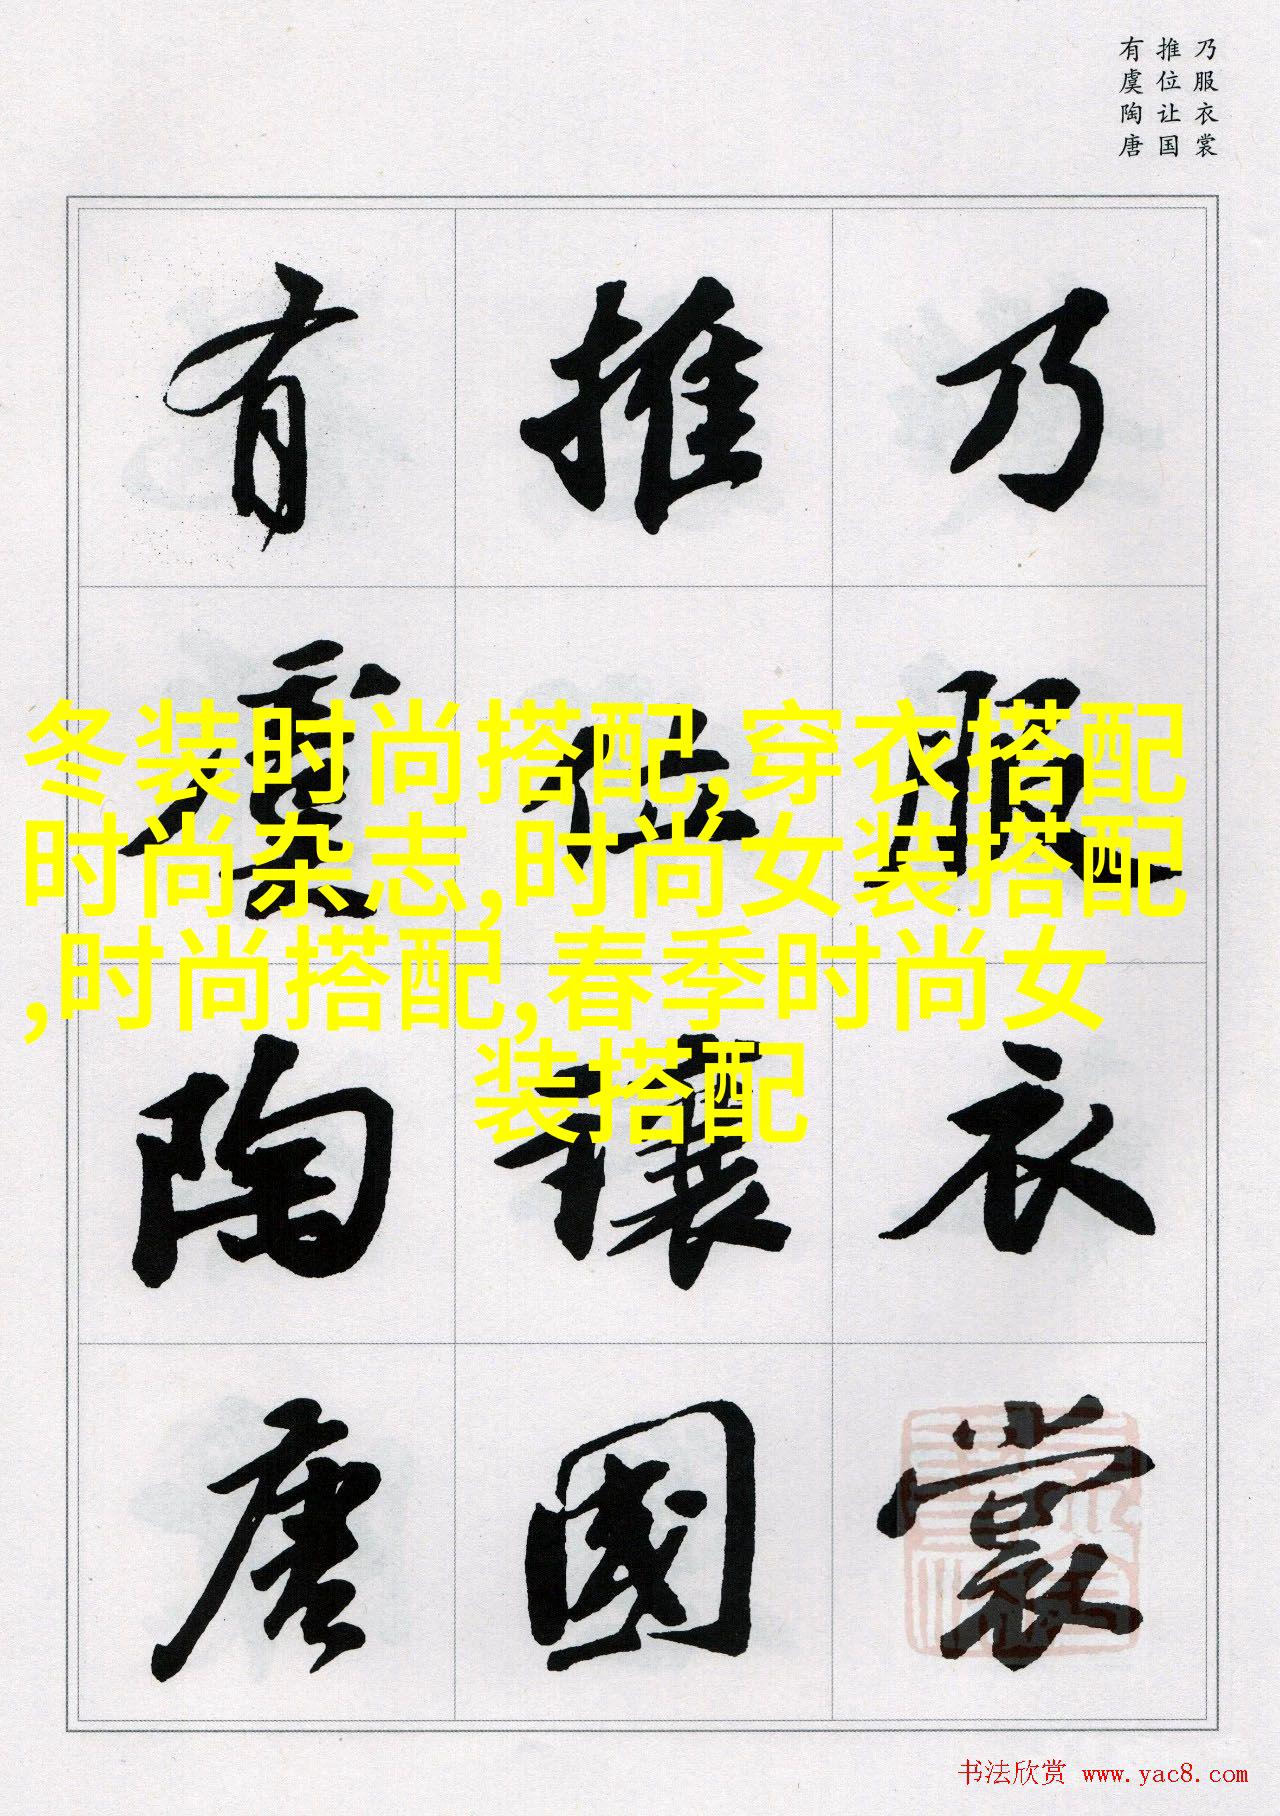 乃服衣裳
推位让国
有虞陶唐
乃服衣裳
推位讓國
有虞陶唐
冬装时尚搭配,穿衣搭配
时尚杂志,时尚女装搭配
,时尚搭配,春季时尚女
装搭配
书法欣赏 www.yac8.com